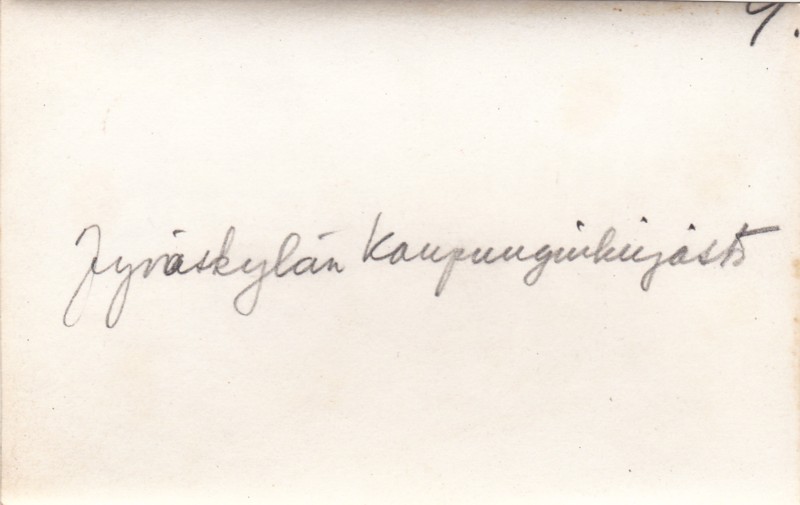 9.
Jyväskylän Kaupunginkirjasto